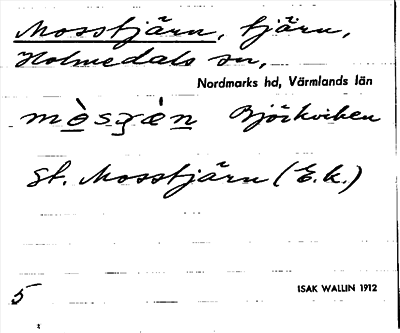 Mosstjärn, tjärn,
Holmedals sn,
Nordmarks hd, Värmlands län
Björkviken
St. Mosstjärn (E.k.)
5
ISAK WALLIN 1912